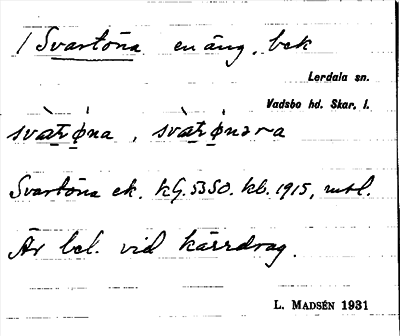 / Svartöna en äng, bek
Lerdala sn.
Vadsbo hd. Skar. l.
svàʈǿna , svàʈǿnəra
Svartöna ek. kG. 53SO. kb. 1915, mtl.
Är bel. vid kärrdrag.
L. MADSÉN 1931